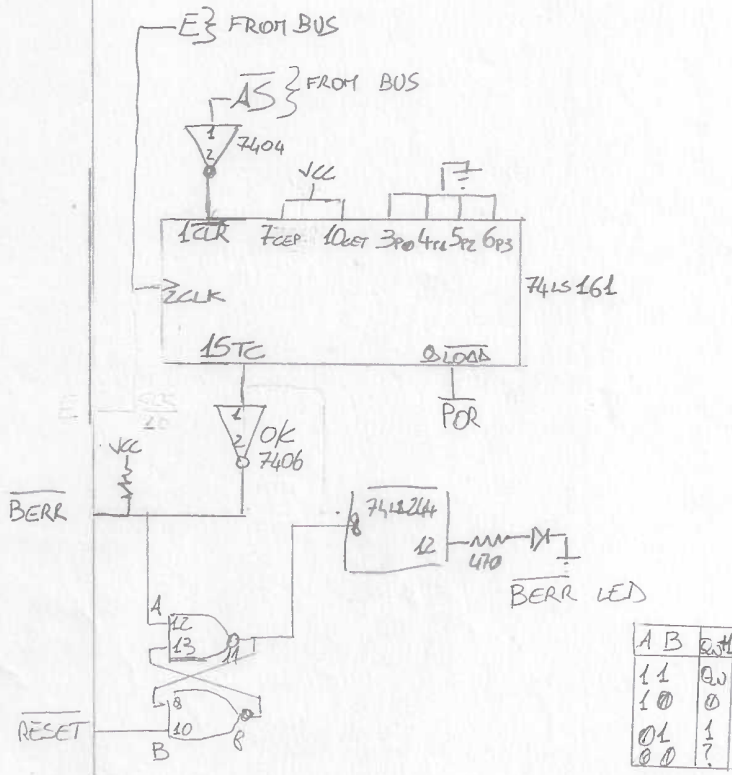 E } FROM BUS
AS } FROM BUS
1
2
7404
VCC
1 CLR 7 CEP 10 CET 3 P0 4 P1 5 P2 6 P3
2 CLK
74LS161
15 TC
LOAD
POR
1
2
OK
7406
VCC
BERR
74LS244
8
12
470
BERR LED
A
12
13
11
RESET
10
8
B
A B QN+1
1 1 QN
1 0 0
0 1 1
0 0 ?